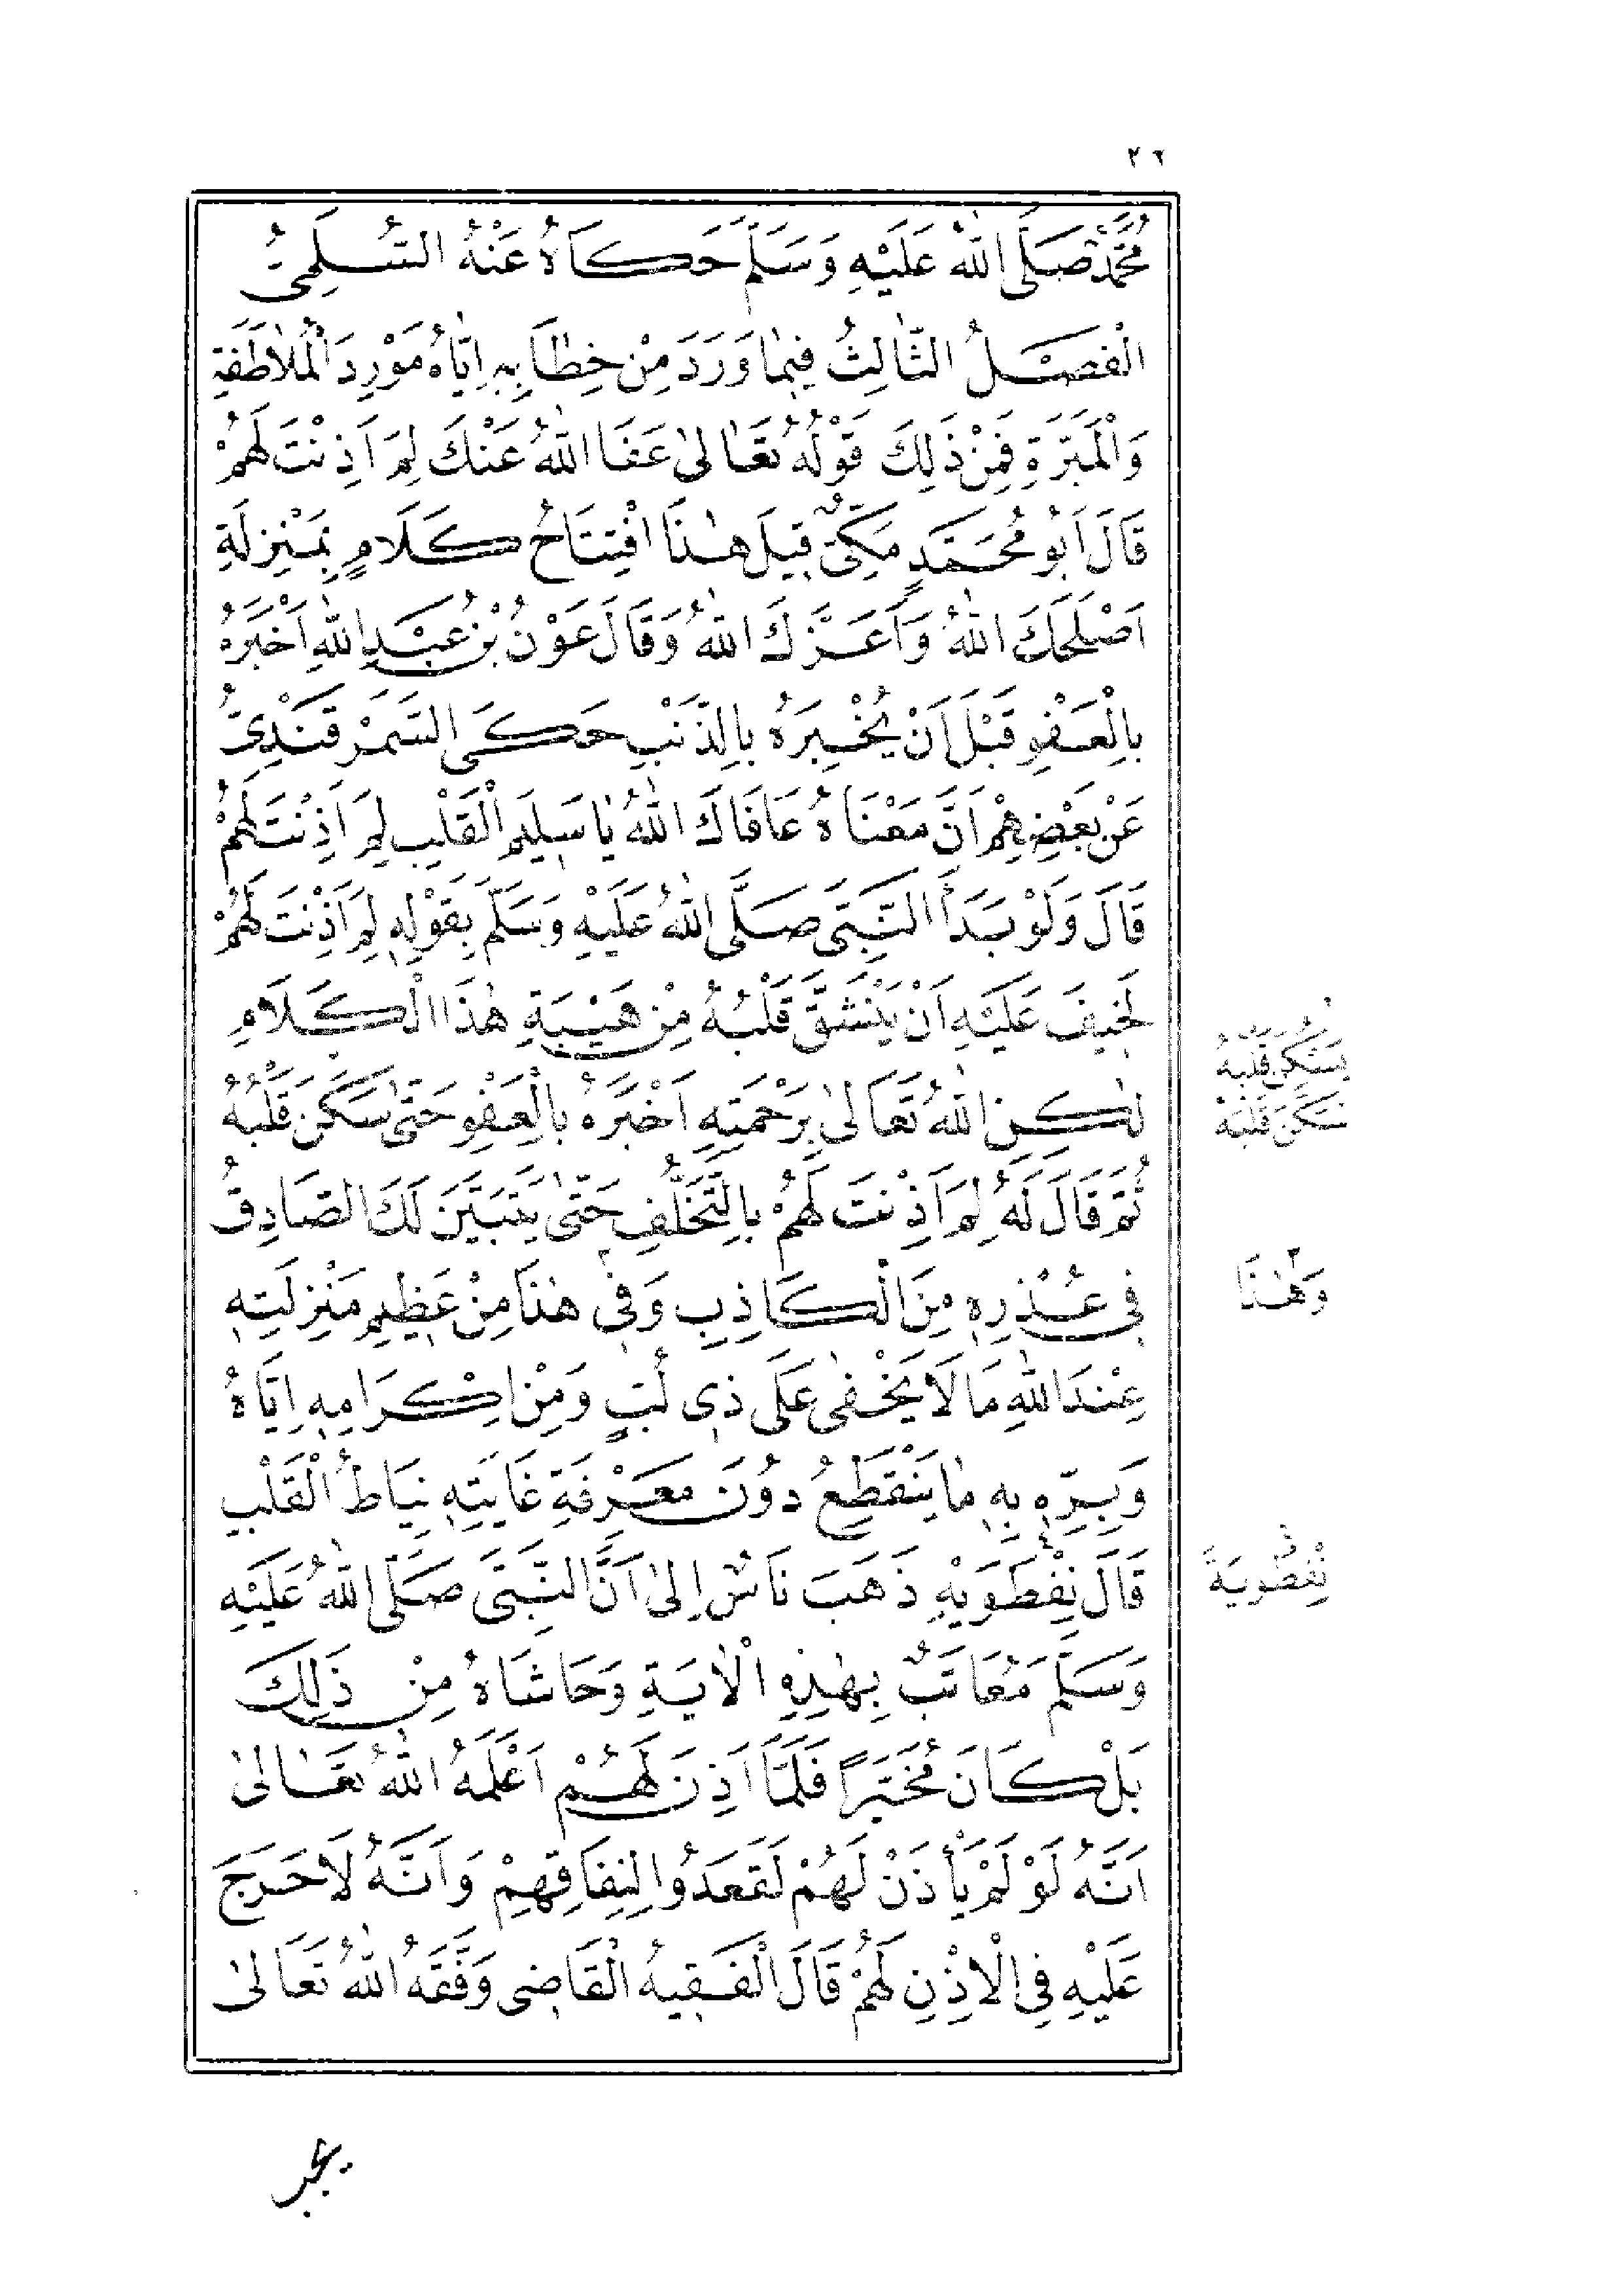 ٢٦
مُحَمَّدٌ صَلَّى اللهُ عَلَيْهِ وَسَلَّمَ حَكَاهُ عَنْهُ السُّلَمِيُّ
الْفَصْلُ الثَّالِثُ فِيمَا وَرَدَ مِنْ خِطَابِهِ اِيَّاهُ مَوْرِدَ الْمُلَاطَفَةِ
وَالْمَبَرَّةِ فَمِنْ ذَلِكَ قَوْلُهُ تَعَالىٰ عَفَا اللهُ عَنْكَ لِمَ اَذِنْتَ لَهُمْ
قَالَ اَبُو مُحَمَّدٍ مَكِّىٌّ قِيلَ هٰذَا افْتِتَاحُ كَلَامٍ بِمَنْزِلَةِ
اَصْلَحَكَ اللهُ وَاَعَزَّكَ اللهُ وَقَالَ عَوْنُ بْنُ عَبْدِ اللهِ اَخْبَرَهُ
بِالْعَفْوِ قَبْلَ اَنْ يُخْبِرَهُ بِالذَّنْبِ حَكَى السَّمَرْقَنْدِىُّ
عَنْ بَعْضِهِمْ اَنَّ مَعْنَاهُ عَافَاكَ اللهُ يَا سَلِيمَ الْقَلْبِ لِمَ اَذِنْتَ لَهُمْ
قَالَ وَلَوْ بَدَأَ النَّبِىَّ صَلَّى اللهُ عَلَيْهِ وَسَلَّمَ بِقَوْلِهِ لِمَ اَذِنْتَ لَهُمْ
لَخِيفَ عَلَيْهِ اَنْ يَنْشَقَّ قَلْبُهُ مِنْ هَيْبَةِ هٰذَا الْكَلَامِ
لٰكِنِ اللهُ تَعَالىٰ بِرَحْمَتِهِ اَخْبَرَهُ بِالْعَفْوِ حَتّىٰ سَكَنَ قَلْبُهُ
ثُمَّ قَالَ لَهُ لِمَ اَذِنْتَ لَهُمْ بِالتَّخَلُّفِ حَتّىٰ يَتَبَيَّنَ لَكَ الصَّادِقُ
فِى عُذْرِهِ مِنَ الْكَاذِبِ وَفِى هٰذَا مِنْ عَظِيمِ مَنْزِلَتِهِ
عِنْدَ اللهِ مَا لَا يَخْفىٰ عَلَى ذِى لُبٍّ وَمِنْ اِكْرَامِهِ اِيَّاهُ
وَبِرِّهِ بِهِ مَا يَنْقَطِعُ دُونَ مَعْرِفَةِ غَايَتِهِ نِيَاطُ الْقَلْبِ
قَالَ نِفْطَوَيْهِ ذَهَبَ نَاسٌ اِلىٰ اَنَّ النَّبِىَّ صَلَّى اللهُ عَلَيْهِ
وَسَلَّمَ مُعَاتَبٌ بِهٰذِهِ الْاٰيَةِ وَحَاشَاهُ مِنْ ذَلِكَ
بَلْ كَانَ مُخَيَّرًا فَلَمَّا اَذِنَ لَهُمْ اَعْلَمَهُ اللهُ تَعَالىٰ
اَنَّهُ لَوْ لَمْ يَأْذَنْ لَهُمْ لَقَعَدُوا لِنِفَاقِهِمْ وَاَنَّهُ لَا حَرَجَ
عَلَيْهِ فِى الْاِذْنِ لَهُمْ قَالَ الْفَقِيهُ الْقَاضِى وَفَّقَهُ اللهُ تَعَالىٰ
قَلْبُهُ
سَكَنَ قَلْبُهُ
وَهٰذَا
نِفْطُويَةُ
يجب